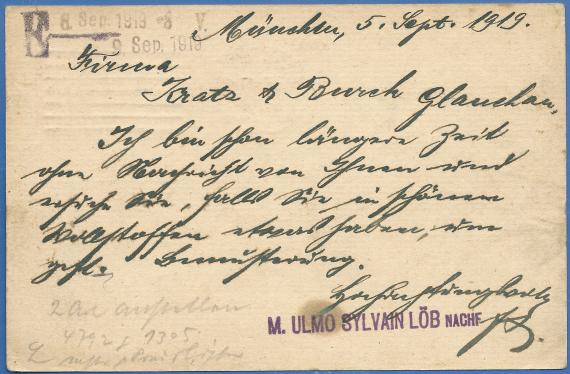 8. Sep. 1919 -8 V.
9 Sep. 1919
München, 5. Sept. 1919.
Firma
Kratz & Burck Glauchau,
Ich bin schon längere Zeit
ohne Nachricht von Ihnen und
ersuche Sie, falls Sie in schönen
Wollstoffen etwas haben, um
gefl. Bemusterung.
Hochachtungsvoll
M. ULMO SYLVAIN LÖB NACHF.
4792 & 1305